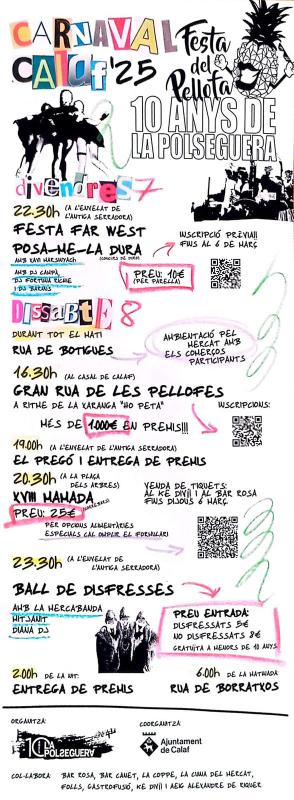 CARNAVAL
CALAF '25
Festa
del
Pellofa
10 ANYS DE
LA POLSEGUERA
divendres 7
22.30h (A L'ENVELAT DE
L'ANTIGA SERRADORA)
FESTA FAR WEST
POSA-ME-LA DURA
(CONCURS DE DURO)
AMB XAVI MARSINYACH
AMB DJ CAMPA,
DJ FORTUNA RICHE
I DJ BARIUS
INSCRIPCIÓ PRÈVIA!!
FINS AL 6 DE MARÇ
PREU: 10€
(PER PARELLA)
DISSABTE 8
DURANT TOT EL MATÍ
RUA DE BOTIGUES
AMBIENTACIÓ PEL
MERCAT AMB
ELS COMERÇOS
PARTICIPANTS
16.30h (AL CASAL DE CALAF)
GRAN RUA DE LES PELLOFES
A RITME DE LA XARANGA "NO PETA"
INSCRIPCIONS:
MÉS DE 1.000€ EN PREMIS!!!
19.00h (A L'ENVELAT DE L'ANTIGA SERRADORA)
EL PREGÓ I ENTREGA DE PREMIS
20.30h (A LA PLAÇA
DELS ARBRES)
XVIII MAMADA
PREU: 25€
PER OPCIONS ALIMENTÀRIES
ESPECIALS CAL OMPLIR EL FORMULARI
VENDA DE TIQUETS:
AL KE DIV!! I AL BAR ROSA
FINS DIJOUS 6 MARÇ
23.30h (A L'ENVELAT DE
L'ANTIGA SERRADORA)
BALL DE DISFRESSES
AMB LA MERCABANDA
HITJANIT
DIANA DJ
PREU ENTRADA:
DISFRESSATS 5€
NO DISFRESSATS 8€
GRATUÏTA A MENORS DE 10 ANYS
2.00h DE LA NIT:
ENTREGA DE PREMIS
6.00h DE LA MATINADA
RUA DE BORRATXOS
ORGANITZA:
10 LA
POLSEGUERA
COORGANITZA:
Ajuntament
de Calaf
COL·LABORA: BAR ROSA, BAR CANET, LA COPPE, LA CUINA DEL MERCAT,
FOLLS, GASTROFUSIÓ, KE DIV!! I AEIG ALEXANDRE DE RIQUER